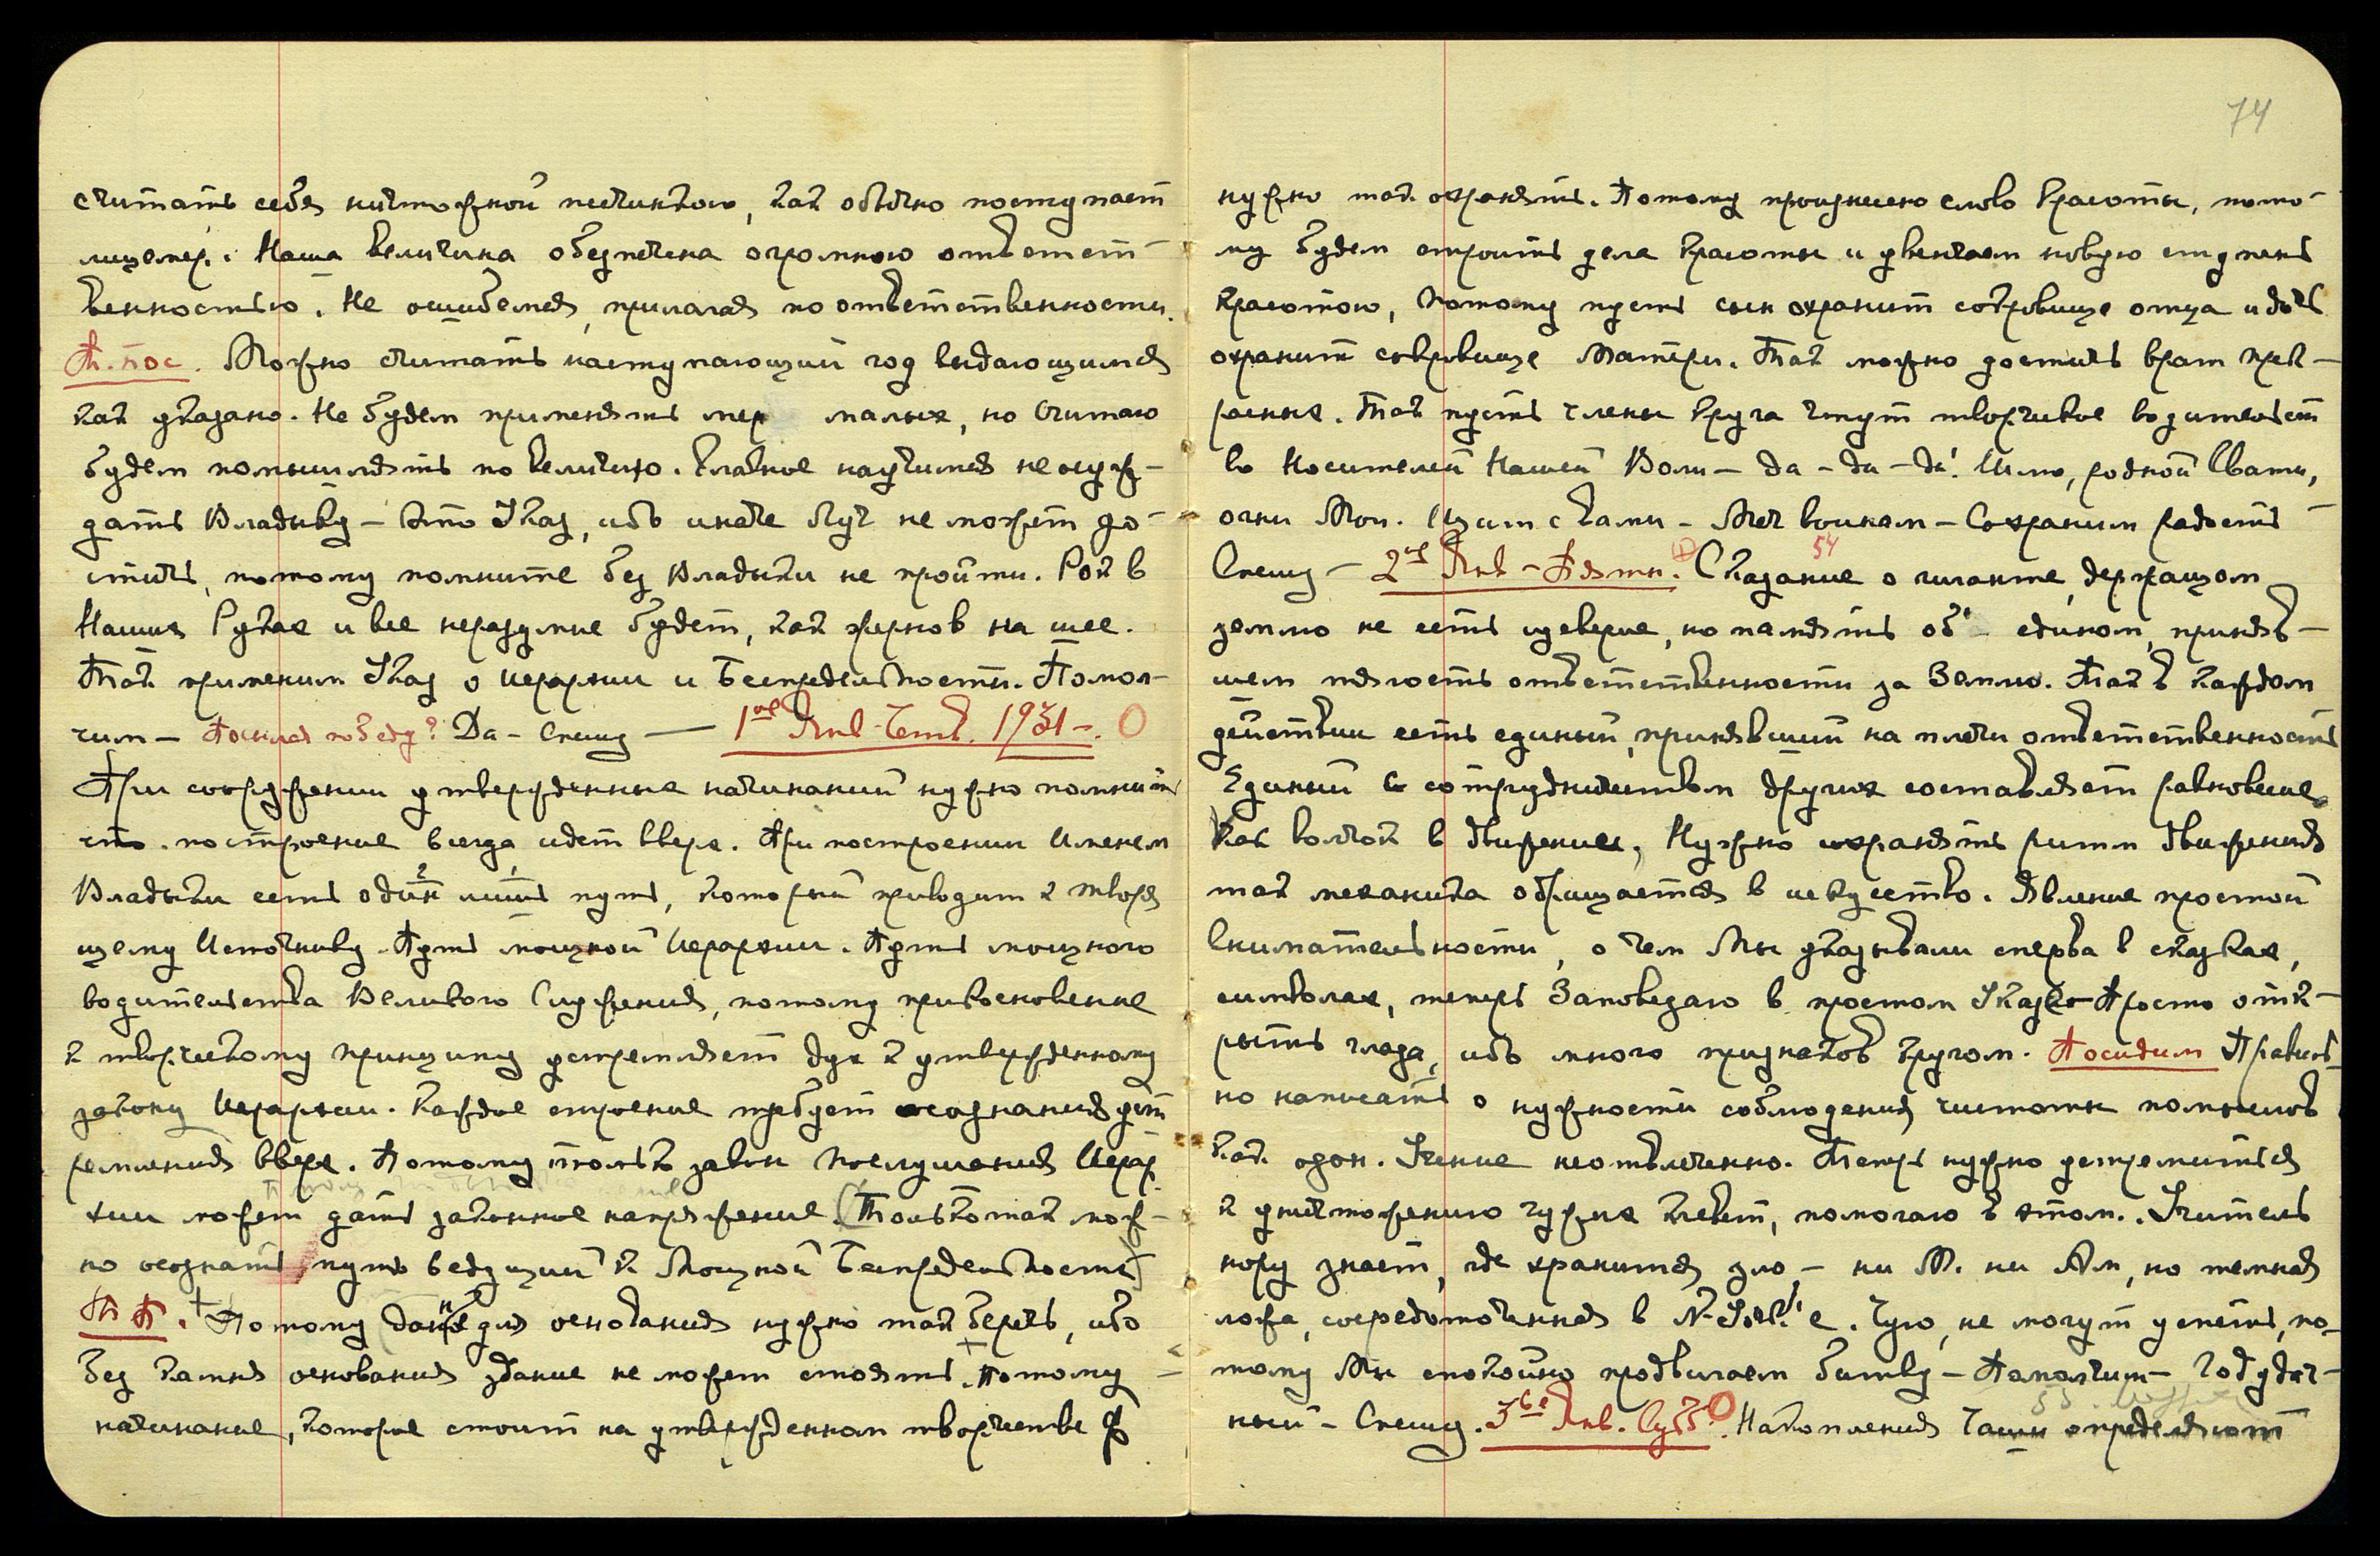 считать себя ничтожной песчинкою, как обычно поступает
лицемер. Наша величина обезпечена огромною ответст-
венностью. Не ошибемся, прилагая по ответственности.
П. пос. Можно считать наступающий год выдающимся
как указано. Не будем применять мер малых, но Считаю
будем помышлять по величию. Главное научимся не осуж-
дать Владыку – это Указ, ибо иначе Луч не может до-
стичь, потому помните без Владыки не пройти. Рок в
Наших Руках и все неразумные будет, как жернов на шее.
Так применим Указ о Иерархии и Беспредельности. Помол-
чим – Посылая победу? Да – Спешу — 1ое Янв – Четв. 1931 –.
При сооружении утвержденных начинаний нужно помнить
что построение всегда идет вверх. При построении Именем
Владыки есть один лишь путь, который приводит к творя
щему Источнику. Путь мощной Иерархии. Путь мощного
водительства Великого Служения, потому прикосновение
к творческому принципу устремляет дух к утвержденному
закону Иерархии. Каждое строение требует осознания уст
ремления вверх. Потому только закон Послушания Иерар
хии может дать законное напряжение. (Только так мож-
но осознать путь ведущий к Мощной Беспредельности)
П П. + Потому данное для основания нужно так беречь, ибо
без камня основания здание не может стоять. Потому
начинание, которое стоит на утвержденном творчестве
74
нужно так охранять. Потому произнесено слово Красоты, пото-
му будем строить дела Красоты и увенчаем новую ступень
Красотою, Потому пусть сын охранит сокровище отца и дочь
охранит сокровище Матери. Так можно достичь врат Прек-
расных. Так пусть члены Круга чтут творческое водительст
во Носителей Нашей Воли – да – да – да! Шлю, родной Свати,
огни Мои. Щит с вами – Меч воинам – Сохраним радость –
Спешу – 2ое Янв – Пятн. 54 Сказание о гиганте, держащем
землю не есть изеверие, но память об едином, приняв-
шем тягость ответственности за Землю. Так в каждом
действии есть единый, принявший на плечи ответственность
Единый с сотрудничеством других составляет равновесие,
Как волчок в движении, Нужно охранять ритм движения
так механика обращается в искусство. Явление простой
внимательности, о чем Мы указывали сперва в сказках,
символах, теперь Заповедаю в простом Указе – Просто отк-
рыть глаза, ибо много признаков кругом. Посидим Правиль-
но написать о нужности соблюдения чистоты помыслов
как озон. Учение неотвлеченно. Теперь нужно устремиться
к уничтожению чужих клевет, помогаю в этом. Учитель
пору знает, где хранится зло, – ни М. ни Ам, но темная
ложа, сосредоточенная в Чую, не могут успеть, по-
тому Мы спокойно продвигаем битву – Помолчим – Год удач-
ный – Спешу. 3ье Янв. Субб. Накопления Чаши определяют